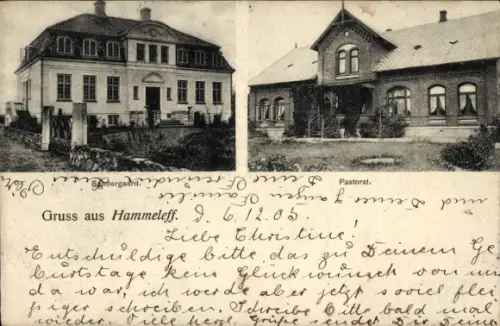 Sondergaard.
Pastorat.
und Deine ganze Familie
Gruss aus Hammeleff. d. 6.12.05
Liebe Christine!
Entschuldige bitte das zu Deinem Ge
burtstage kein Glückwunsch von mir
da war, ich werde aber jetzt soviel flei
ßiger schreiben. Schreibe bitte bald mal
wieder. Viele herzl. Grüße sendet